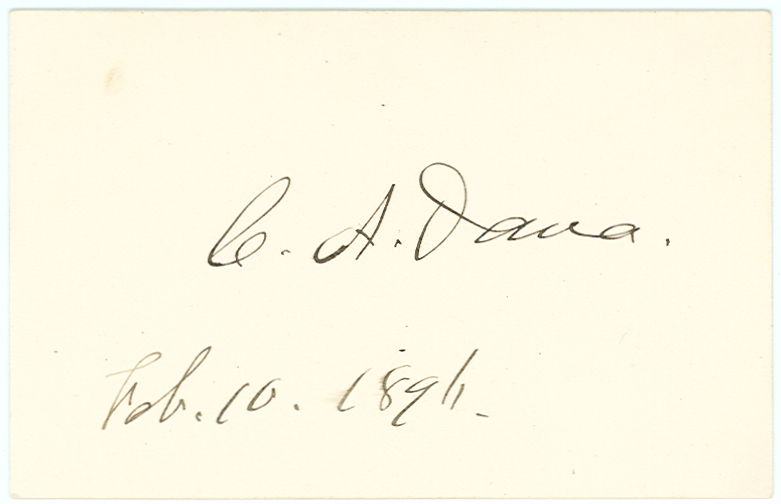 C. A. Dana.
Feb. 10. 1896.